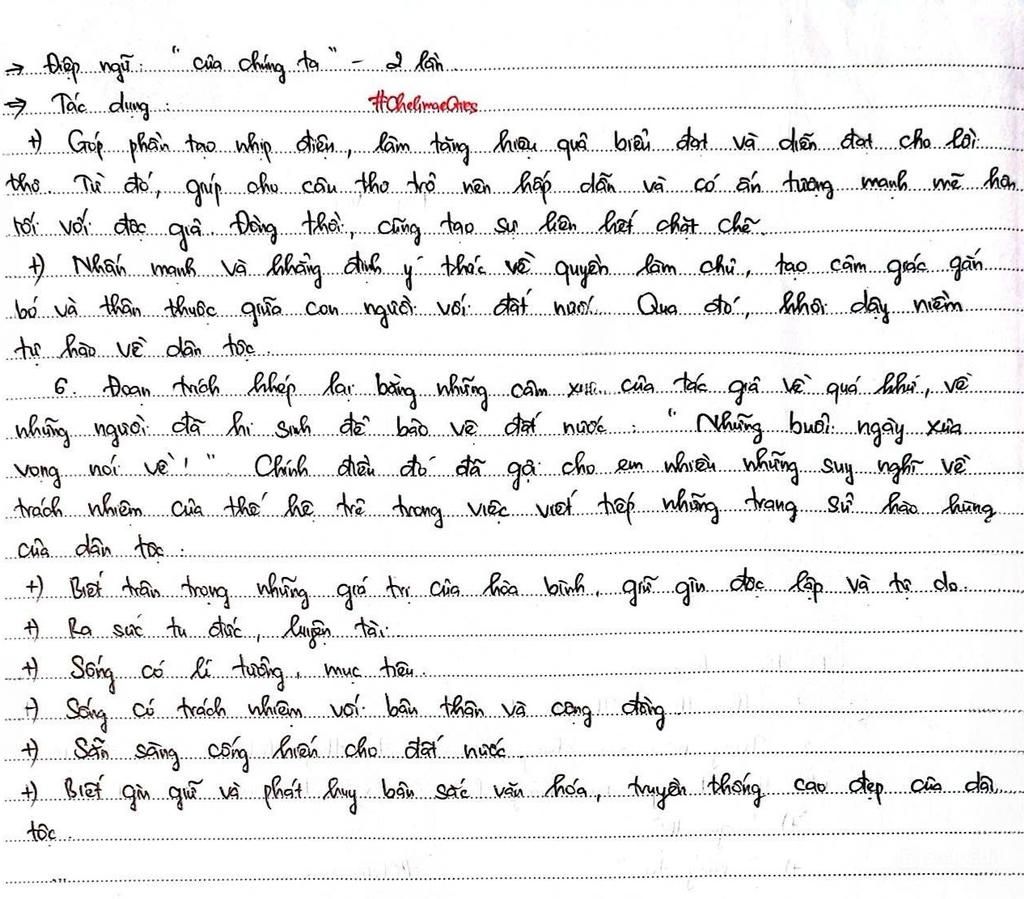 → Điệp ngữ: "của chúng ta" - 2 lần
⇒ Tác dụng:
+) Góp phần tạo nhịp điệu, làm tăng hiệu quả biểu đạt và diễn đạt cho lời
thơ. Từ đó, giúp cho câu thơ trở nên hấp dẫn và có ấn tượng mạnh mẽ hơn
với độc giả. Đồng thời, cũng tạo sự liên kết chặt chẽ.
+) Nhấn mạnh và khẳng định ý thức về quyền làm chủ, tạo cảm giác gắn
bó và thân thuộc giữa con người với đất nước. Qua đó, khơi dậy niềm
tự hào về dân tộc.
6. Đoạn trích khép lại bằng những cảm xúc của tác giả về quá khứ, về
những người đã hi sinh để bảo vệ đất nước: "Những buổi ngày xưa
vọng nói về!" Chính điều đó đã gợi cho em nhiều những suy nghĩ về
trách nhiệm của thế hệ trẻ trong việc viết tiếp những trang sử hào hùng
của dân tộc:
+) Biết trân trọng những giá trị của hòa bình, giữ gìn độc lập và tự do.
+) Ra sức tu đức, luyện tài.
+) Sống có lí tưởng, mục tiêu.
+) Sống có trách nhiệm với bản thân và cộng đồng.
+) Sẵn sàng cống hiến cho đất nước.
+) Biết gìn giữ và phát huy bản sắc văn hóa, truyền thống cao đẹp của dân
tộc.